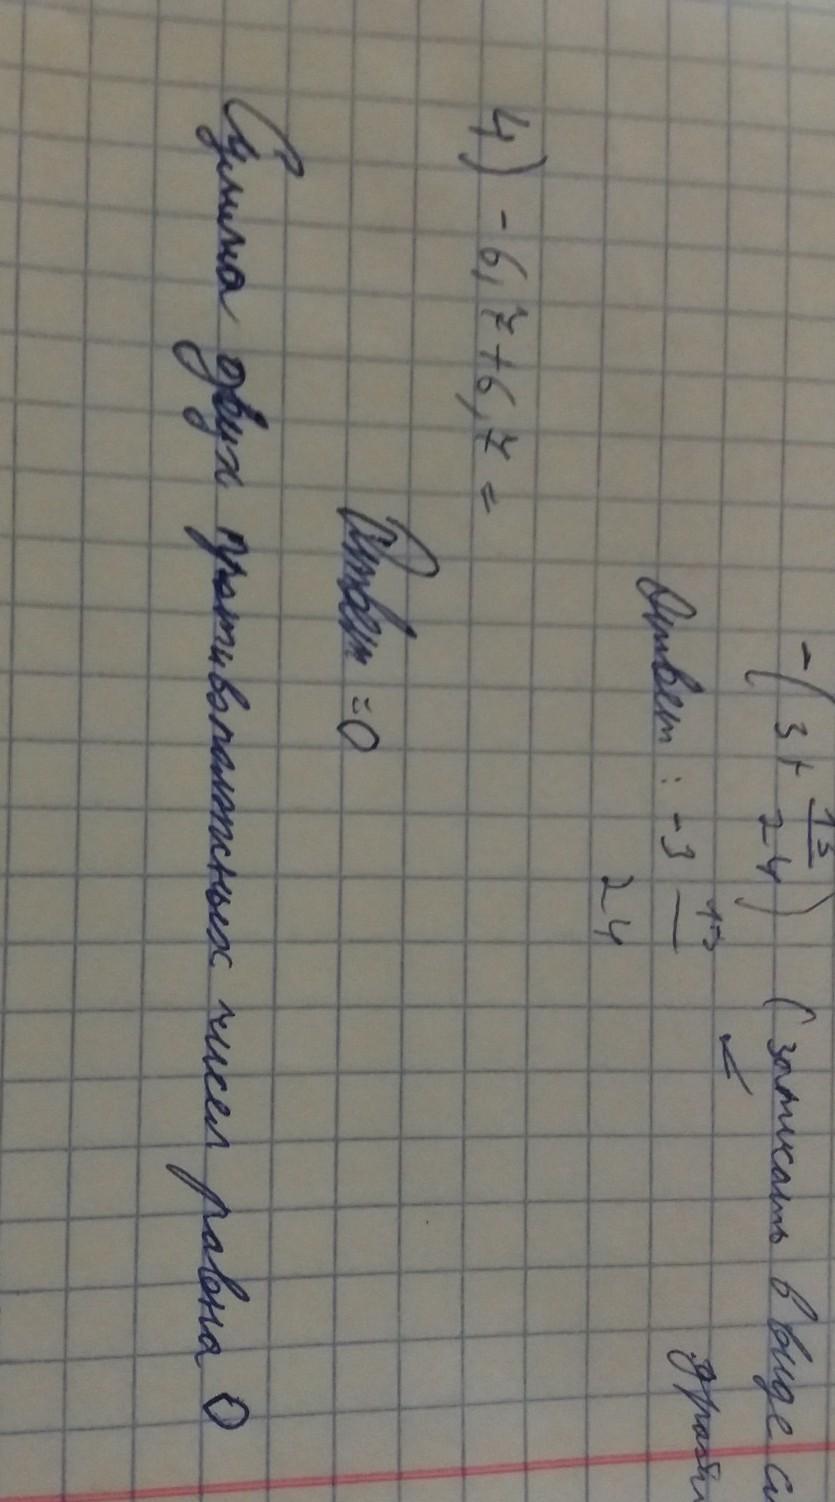 -(3+ 13/24) (записать в виде
Ответ: -3 13/24
4) -6,7+6,7=
Ответ =0
Сумма двух противоположных чисел равна 0